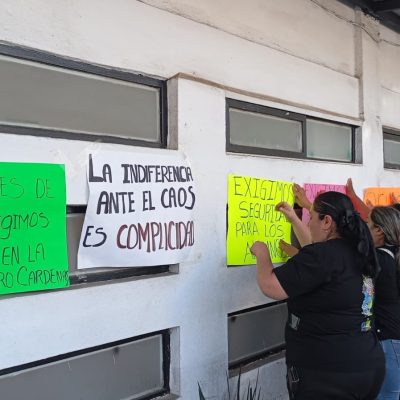 ES DE
IGIMOS
EN LA
RO CARDENAS
LA INDIFERENCIA
ANTE EL CAOS
ES COMPLICIDAD
EXIGIMOS
SEGURIDAD
PARA LOS